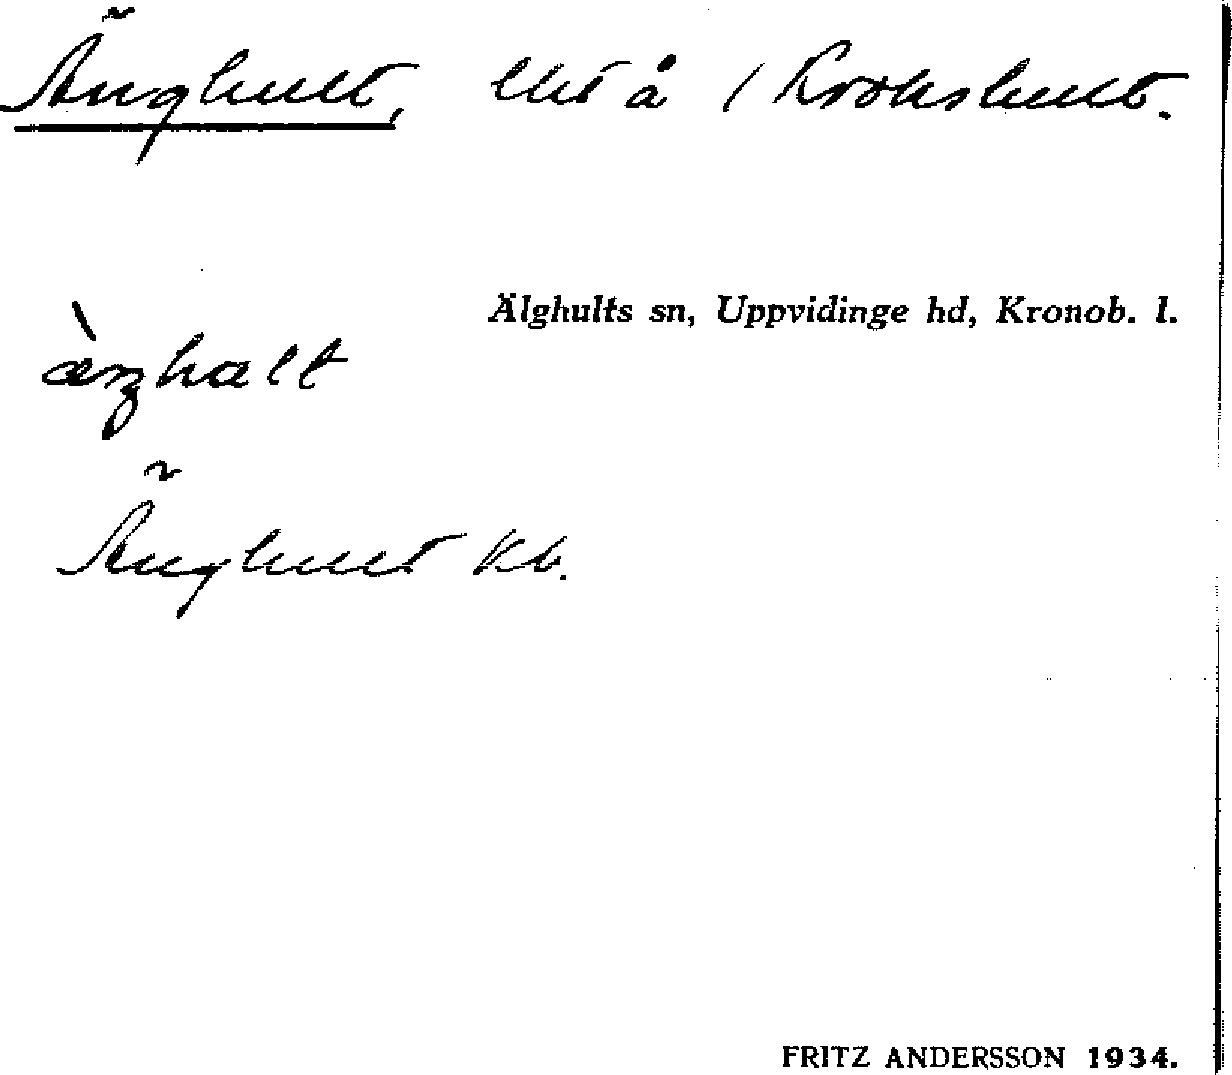 Änghult, lht å 1 Krokshult.
Älghults sn, Uppvidinge hd, Kronob. l.
Änghult kb.
FRITZ ANDERSSON 1934.